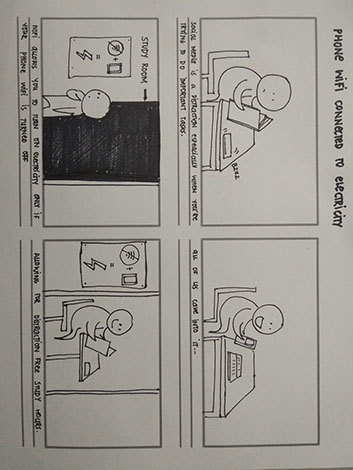 PHONE WIFI CONNECTED TO ELECTRICITY
BZZZ
SOCIAL MEDIA IS A DISTRACTION ESPECIALLY WHEN YOU'RE
TRYING TO DO IMPORTANT TASKS.
ALL OF US CAVE INTO IT...
STUDY ROOM
NOFI ALLOWS YOU TO TURN ON ELECTRICITY ONLY IF
YOUR PHONE WIFI IS TURNED OFF
ALLOWING FOR DISTRACTION FREE STUDY HOURS.